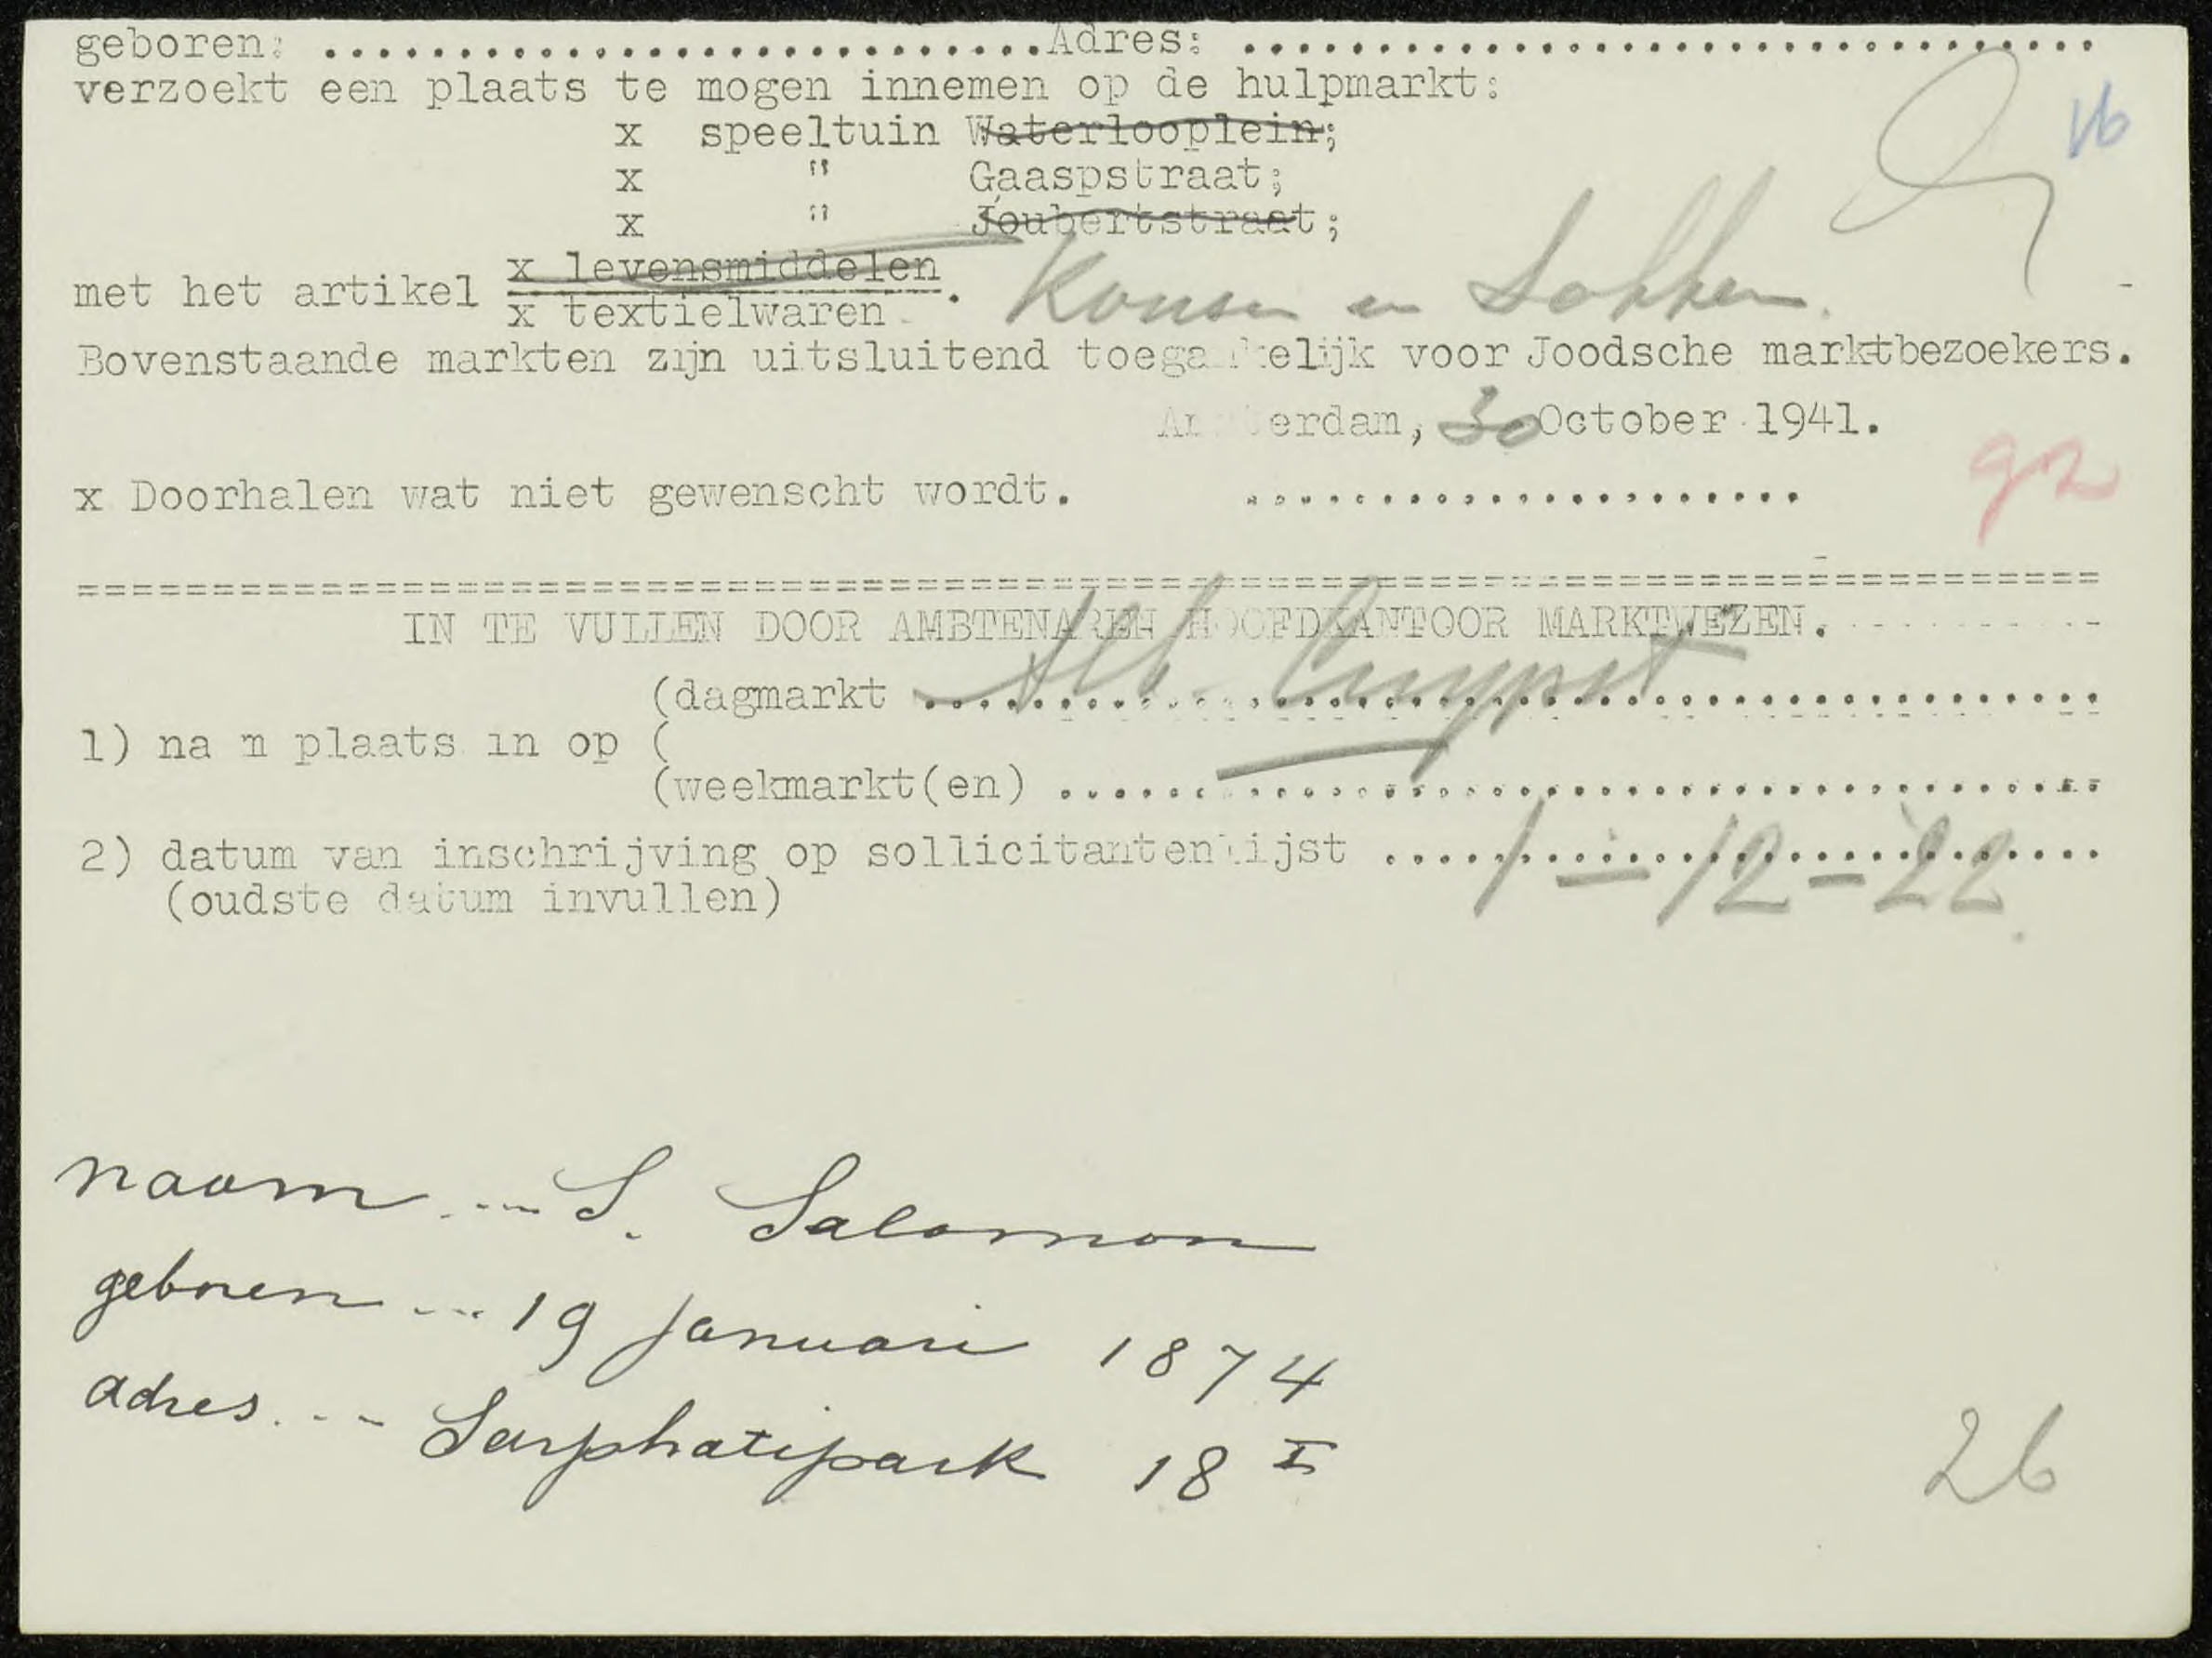 geboren: ...........................Adres: ................................
verzoekt een plaats te mogen innemen op de hulpmarkt:
16
x speeltuin Waterlooplein;
x " Gaaspstraat;
x " Joubertstraat;
met het artikel x levensmiddelen
x textielwaren. Kousen en Sokken.
Bovenstaande markten zijn uitsluitend toegankelijk voor Joodsche marktbezoekers.
Amsterdam, 30 October 1941.
x Doorhalen wat niet gewenscht wordt. .....................
========================================
IN TE VULLEN DOOR AMBTENAREN HOOFDKANTOOR MARKTWEZEN.
(dagmarkt Alb. Cuypst
1) na m plaats in op (
(weekmarkt(en) .......................................
2) datum van inschrijving op sollicitantenlijst 1-12-22
(oudste datum invullen)
naam .... S. Salomon
geboren .... 19 januari 1874
adres.... Sarphatipark 18 I
26